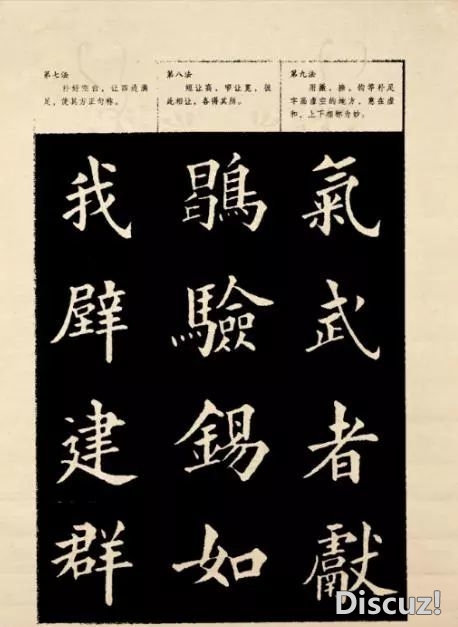 第七法
补好空白，让四边满
足，使其方正匀称。
第八法
短让高，窄让宽，彼
此相让，各得其所。
第九法
用撇、捺、钩等补足
字面虚空的地方，意在虚
和，上下相称为妙。
我辟建群
驗錫如
氣武者獻
Discuz!